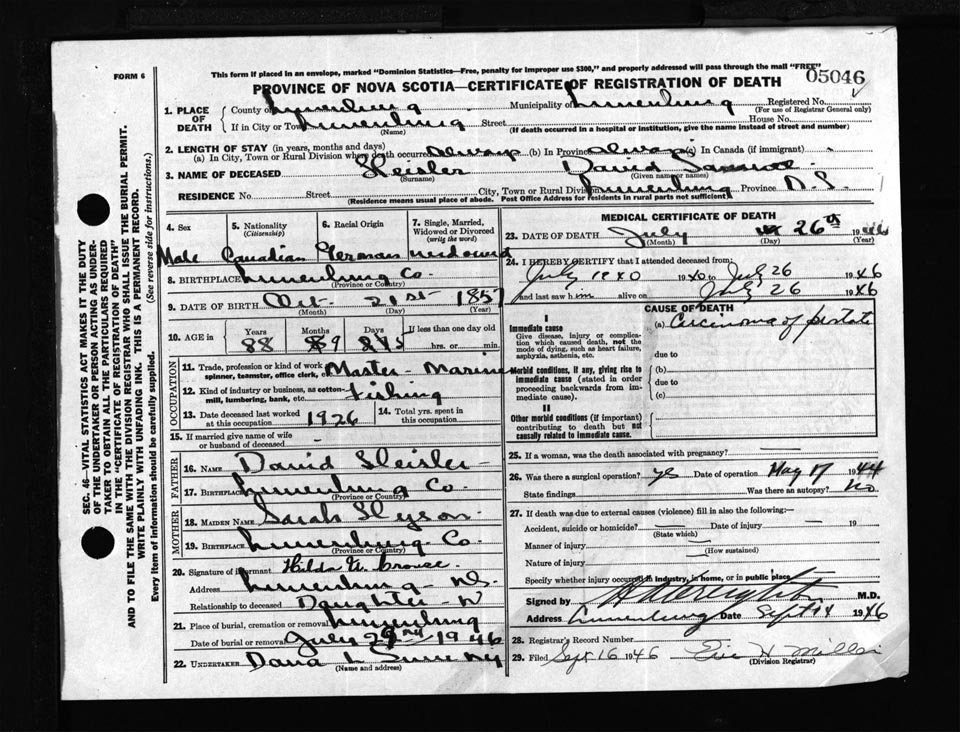 This form if placed in an envelope, marked "Dominion Statistics—Free, penalty for improper use $300," and properly addressed will pass through the mail "FREE"
FORM 6
05046
PROVINCE OF NOVA SCOTIA—CERTIFICATE OF REGISTRATION OF DEATH
1. PLACE OF DEATH County of Lunenburg Municipality of Lunenburg Registered No.
(For use of Registrar General only)
If in City or Town Lunenburg Street House No.
(Name) (If death occurred in a hospital or institution, give the name instead of street and number)
2. LENGTH OF STAY (in years, months and days)
(a) In City, Town or Rural Division where death occurred always (b) In Province always (c) In Canada (if immigrant)
3. NAME OF DECEASED David Samuel
(Surname) (Given name or names)
RESIDENCE No. Street City, Town or Rural Division Lunenburg Province N.S.
(Residence means usual place of abode. Post Office Address for residents in rural parts not sufficient)
4. Sex 5. Nationality (Citizenship) 6. Racial Origin 7. Single, Married, Widowed or Divorced (write the word)
Male Canadian German widowed
8. BIRTHPLACE Lunenburg Co.
(Province or Country)
9. DATE OF BIRTH Oct. 21st 1857
(Month) (Day) (Year)
10. AGE in Years Months Days If less than one day old
88 9 hrs. or min.
OCCUPATION
11. Trade, profession or kind of work as spinner, teamster, office clerk, etc. Master Mariner
12. Kind of industry or business, as cotton-mill, lumbering, bank, etc. Fishing
13. Date deceased last worked at this occupation 1926 14. Total yrs. spent in this occupation
15. If married give name of wife or husband of deceased -
FATHER
16. NAME David
17. BIRTHPLACE Lunenburg Co.
(Province or Country)
MOTHER
18. MAIDEN NAME Sarah
19. BIRTHPLACE Lunenburg Co.
(Province or Country)
20. Signature of informant Hilda Crouse
Address Lunenburg N.S.
Relationship to deceased Daughter
21. Place of burial, cremation or removal Lunenburg
Date of burial or removal July 1946
22. UNDERTAKER Dana L Sweeny
(Name and address)
MEDICAL CERTIFICATE OF DEATH
23. DATE OF DEATH July 26th 1946
(Month) (Day) (Year)
24. I HEREBY CERTIFY that I attended deceased from:
July 1940 1940 to July 26 1946
and last saw him alive on July 26 1946
CAUSE OF DEATH
I
Immediate cause
Give disease, injury or complication which caused death, not the mode of dying, such as heart failure, asphyxia, asthenia, etc.
(a) Carcinoma of prostate
due to
Morbid conditions, if any, giving rise to immediate cause (stated in order proceeding backwards from immediate cause).
(b)
due to
(c)
II
Other morbid conditions (if important) contributing to death but not causally related to immediate cause.
25. If a woman, was the death associated with pregnancy?
26. Was there a surgical operation? yes Date of operation May 17 1944
State findings Was there an autopsy? no
27. If death was due to external causes (violence) fill in also the following:—
Accident, suicide or homicide? Date of injury 19
(State which)
Manner of injury
(How sustained)
Nature of injury
Specify whether injury occurred in industry, in home, or in public place
Signed by M.D.
Address Lunenburg Date Sept 14 1946
28. Registrar's Record Number
29. Filed Sept 16 1946
(Division Registrar)
SEC. 46—VITAL STATISTICS ACT MAKES IT THE DUTY
OF THE UNDERTAKER OR PERSON ACTING AS UNDER-
TAKER TO OBTAIN ALL THE PARTICULARS REQUIRED
IN THE "CERTIFICATE OF REGISTRATION OF DEATH"
AND TO FILE THE SAME WITH THE DIVISION REGISTRAR WHO SHALL ISSUE THE BURIAL PERMIT.
WRITE PLAINLY WITH UNFADING INK. THIS IS A PERMANENT RECORD.
Every item of information should be carefully supplied. (See reverse side for instructions.)